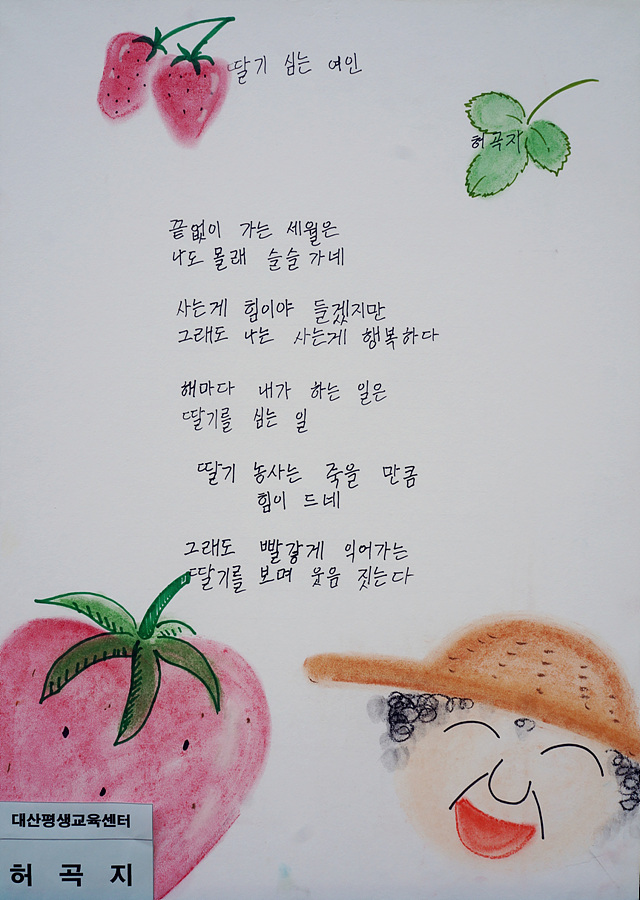 딸기 심는 여인
허곡지
끝없이 가는 세월은
나도 몰래 슬슬 가네
사는게 힘이야 들겠지만
그래도 나는 사는게 행복하다
해마다 내가 하는 일은
딸기를 심는 일
딸기 농사는 죽을 만큼
힘이 드네
그래도 빨갛게 익어가는
딸기를 보며 웃음 짓는다
대산평생교육센터
허 곡 지